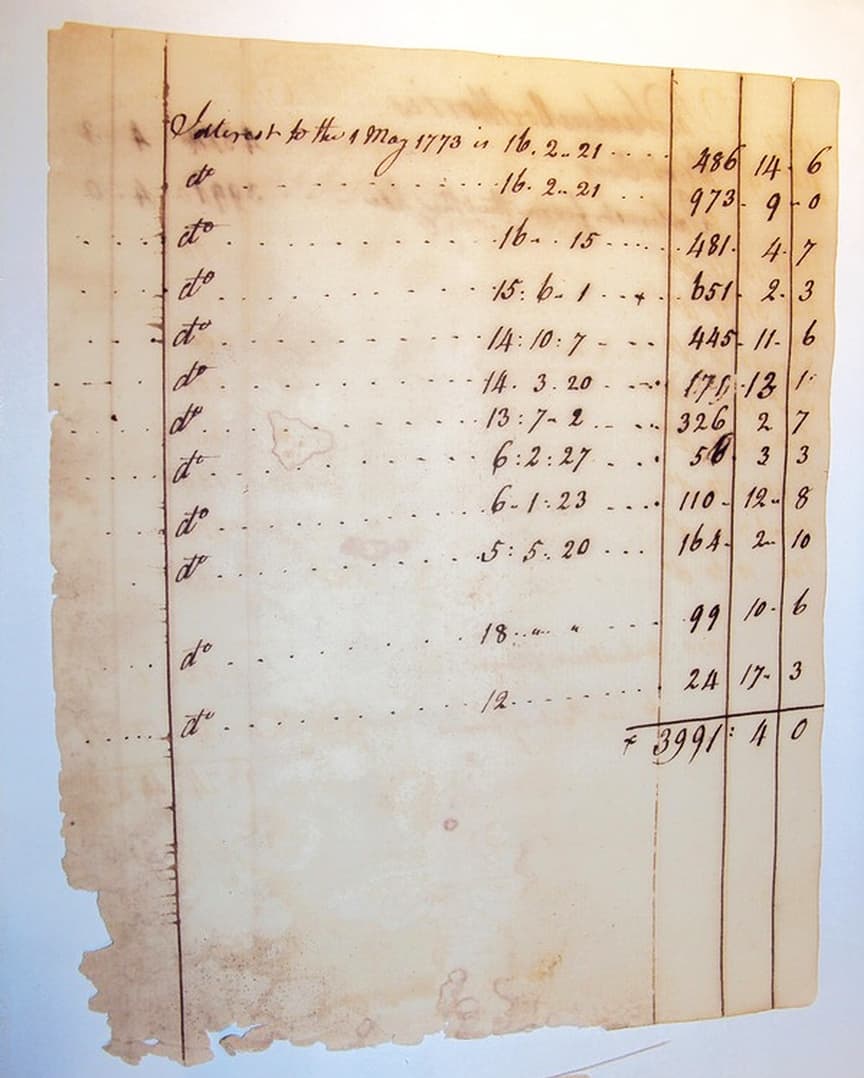 Interest to the 1 May 1773 is 16. 2.. 21 .... 486 14 . 6
do ....... 16. 2.. 21 973 . 9 - 0
do ....... 16 - . 15 .... 481. 4. 7
do ....... 15: 6 - 1 651. 2. 3
do ....... 14: 10: 7 - - - 445. 11. 6
do ....... 14. 3. 20 171 . 13 1
do ....... 13: 7 - 2 326 2 7
do ....... 6: 2: 27 56 3 3
do ....... 6 - 1: 23 110 - 12 - 8
do ....... 5: 5. 20 ... 164 - 2 - 10
do ....... 18 .. " .. " 99 10 - 6
do ....... 12 ....... 24 17 - 3
3991: 4 0